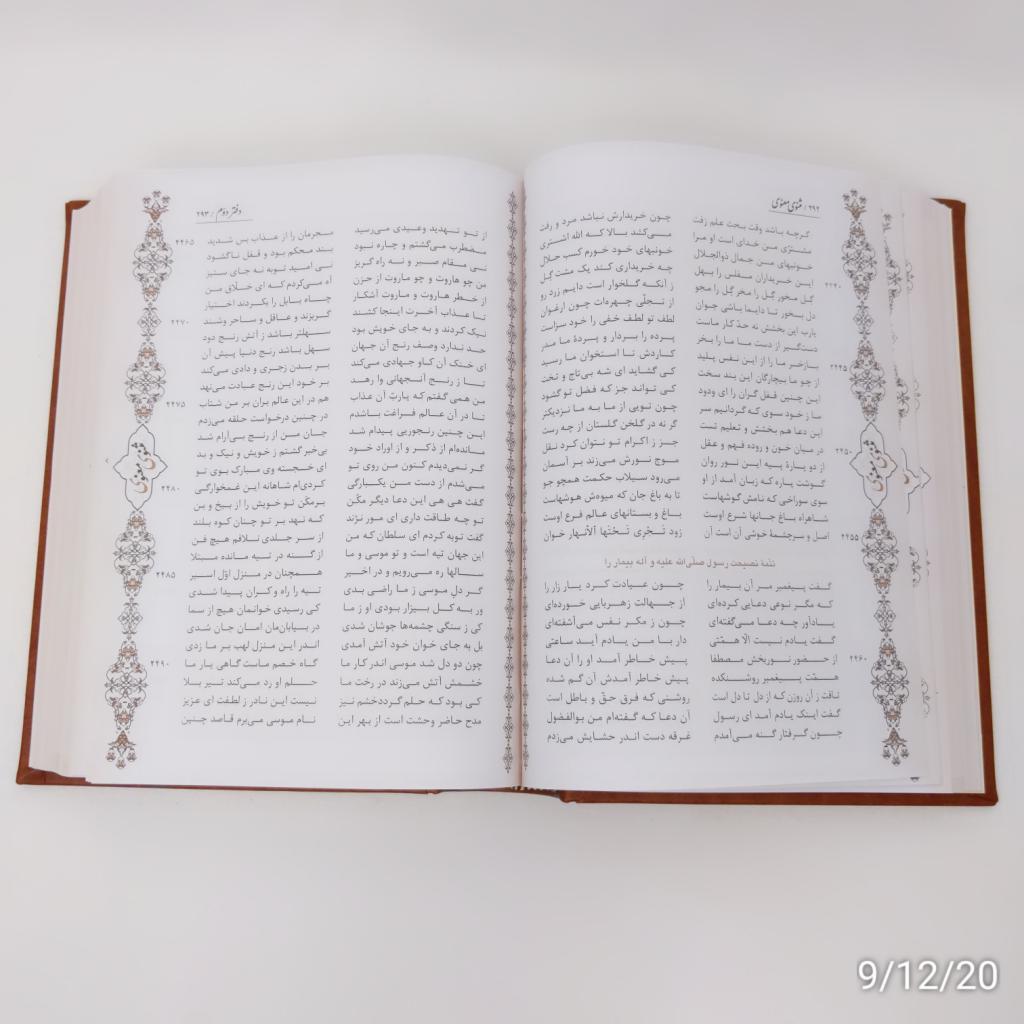 ۲۹۲ / مثنوی معنوی
گرچه باشد وقت بحث علم زفت چون خریدارش نباشد مرد و رفت
مشتری من خدای است او مرا می‌کشد بالا که الله اشتری
خونبهای من جمال ذوالجلال خونبهای خود خورم کسب حلال
این خریداران مفلس را بهل چه خریداری کند یک مشت گل
۲۴۴۰ گل مخور گل را مخر گل را مجو زآنکه گلخوار است دایم زرد رو
دل بخور تا دایما باشی جوان از تجلی چهره‌ات چون ارغوان
یارب این بخشش نه حد کار ماست لطف تو لطف خفی را خود سزاست
دست‌گیر از دست ما ما را بخر پرده را بردار و پردهٔ ما مدر
بازخر ما را از این نفس پلید کاردش تا استخوان ما رسید
۲۴۴۵ از چو ما بیچارگان این بند سخت کی گشاید ای شه بی‌تاج و تخت
این چنین قفل گران را ای ودود کی تواند جز که فضل تو گشود
ما ز خود سوی که گردانیم سر چون تویی از ما به ما نزدیکتر
این دعا هم بخشش و تعلیم تست گر نه در گلخن گلستان از چه رست
در میان خون و روده فهم و عقل جز ز اکرام تو نتوان کرد نقل
۲۴۵۰ از دو پارهٔ پیه این نور روان موج نورش می‌زند بر آسمان
گوشت پاره که زبان آمد از او می‌رود سیلاب حکمت همچو جو
سوی سوراخی که نامش گوشهاست تا به باغ جان که میوه‌ش هوشهاست
شاهراه باغ جانها شرع اوست باغ و بستانهای عالم فرع اوست
۲۴۵۵ اصل و سرچشمهٔ خوشی آن است آن زود تجری تحتها الانهار خوان
تتمهٔ نصیحت رسول صلی‌الله علیه و آله بیمار را
گفت پیغمبر مر آن بیمار را چون عیادت کرد یار زار را
که مگر نوعی دعایی کرده‌ای از جهالت زهربایی خورده‌ای
یادآور چه دعا می‌گفته‌ای چون ز مکر نفس می‌آشفته‌ای
گفت یادم نیست الا همتی دار با من یادم آید ساعتی
۲۴۶۰ از حضور نوربخش مصطفا پیش خاطر آمد او را آن دعا
همت پیغمبر روشنکده پیش خاطر آمدش آن گم شده
تافت ز آن روزن که از دل تا دل است روشنی که فرق حق و باطل است
گفت اینک یادم آمد ای رسول آن دعا که گفته‌ام من بوالفضول
چون گرفتار گنه می‌آمدم غرقه دست اندر حشایش می‌زدم
دفتر دوم / ۲۹۳
۲۴۶۵ از تو تهدید و وعیدی می‌رسید مجرمان را از عذاب بس شدید
مضطرب می‌گشتم و چاره نبود بند محکم بود و قفل ناگشود
نی مقام صبر و نه راه گریز نی امید توبه نه جای ستیز
من چو هاروت و چو ماروت از حزن آه می‌کردم که ای خلاق من
از خطر هاروت و ماروت آشکار چاه بابل را بکردند اختیار
۲۴۷۰ تا عذاب آخرت اینجا کشند گربزند و عاقل و ساحر وشند
نیک کردند و به جای خویش بود سهلتر باشد ز آتش رنج دود
حد ندارد وصف رنج آن جهان سهل باشد رنج دنیا پیش آن
ای خنک آن کاو جهادی می‌کند بر بدن زجری و دادی می‌کند
تا ز رنج آنجهانی وا رهد بر خود این رنج عبادت می‌نهد
۲۴۷۵ من همی گفتم که یارب آن عذاب هم در این عالم بران بر من شتاب
تا در آن عالم فراغت باشدم در چنین درخواست حلقه می‌زدم
این چنین رنجوریی پیدام شد جان من از رنج بی‌آرام شد
مانده‌ام از ذکر و از اوراد خود بی‌خبر گشتم ز خویش و نیک و بد
گر نمی‌دیدم کنون من روی تو ای خجسته وی مبارک بوی تو
۲۴۸۰ می‌شدم از دست من یکبارگی کردی‌ام شاهانه این غمخوارگی
گفت هی هی این دعا دیگر مکن برمکن تو خویش را از بیخ و بن
تو چه طاقت داری ای مور نژند که نهد بر تو چنان کوه بلند
گفت توبه کردم ای سلطان که من از سر جلدی نلافم هیچ فن
این جهان تیه است و تو موسی و ما از گنه در تیه مانده مبتلا
۲۴۸۵ سالها ره می‌رویم و در اخیر همچنان در منزل اول اسیر
گر دل موسی ز ما راضی بدی تیه را راه و کران پیدا شدی
ور به کل بیزار بودی او ز ما کی رسیدی خوانمان هیچ از سما
کی ز سنگی چشمه‌ها جوشان شدی در بیابان‌مان امان جان شدی
بل به جای خوان خود آتش آمدی اندر این منزل لهب بر ما زدی
۲۴۹۰ چون دو دل شد موسی اندر کار ما گاه خصم ماست گاهی یار ما
خشمش آتش می‌زند در رخت ما حلم او رد می‌کند تیر بلا
کی بود که حلم گردد خشم نیز نیست این نادر ز لطفت ای عزیز
مدح حاضر وحشت است از بهر این نام موسی می‌برم قاصد چنین
9/12/20